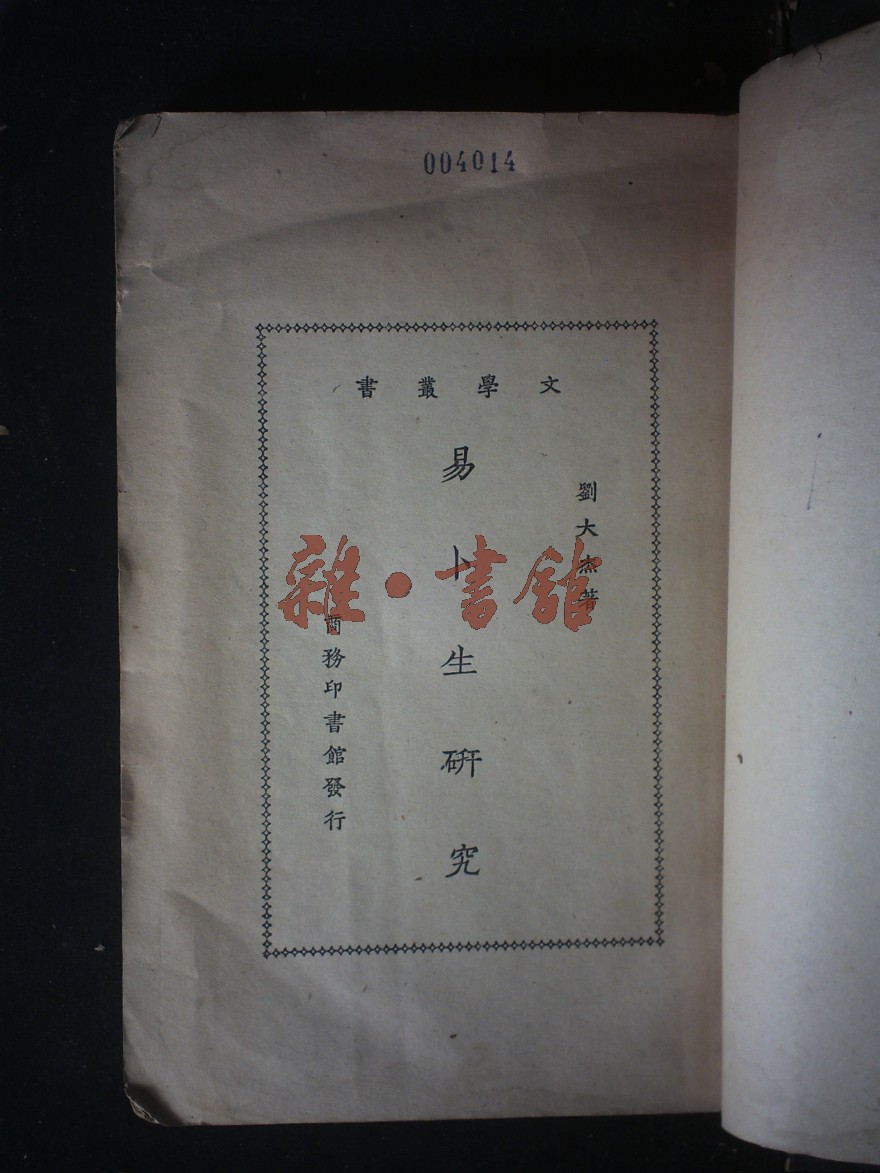 004014
文學叢書
劉大杰著
易卜生硏究
商務印書館發行
雜·書館